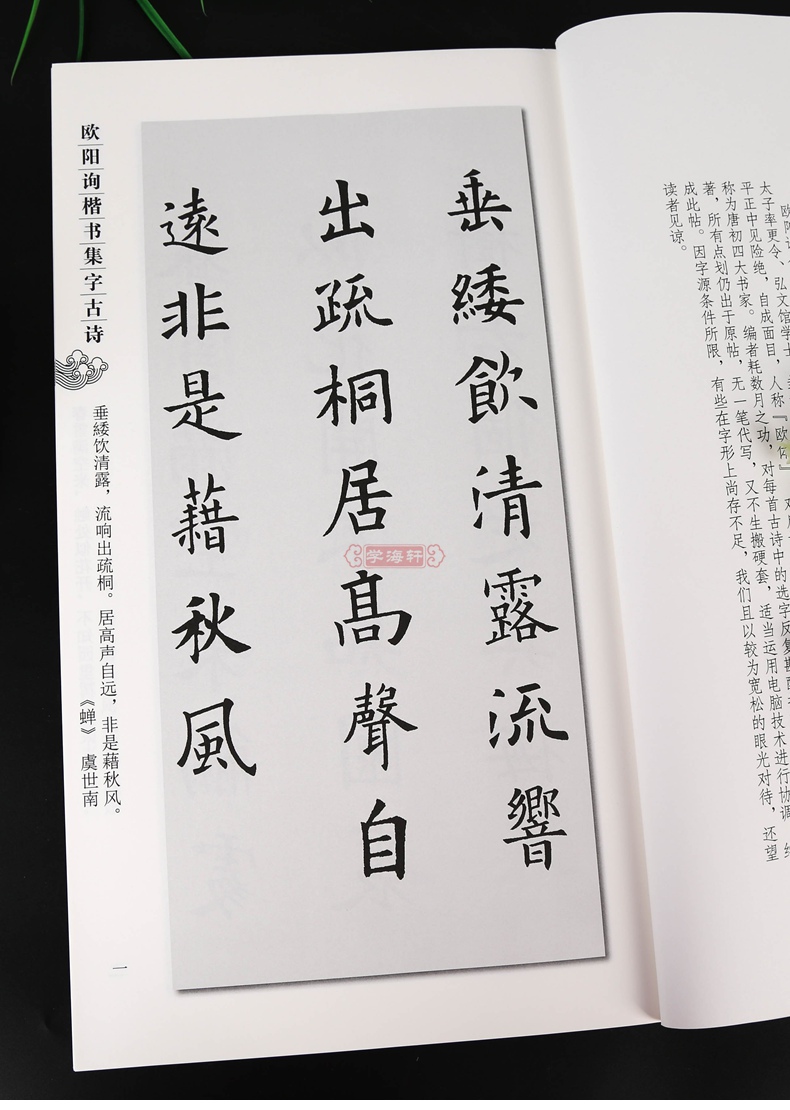 欧阳询
太子率更令、弘文馆学士
平正中见险绝，自成面目，人称『欧体』
称为唐初四大书家。编者耗数月之功，对每首古诗中的选字反复斟
著，所有点划仍出于原帖，无一笔代写，又不生搬硬套，适当运用电脑技术进行协调
成此帖。因字源条件所限，有些在字形上尚存不足，我们且以较为宽松的眼光对待，还望
读者见谅。
垂緌飲清露流響
出疏桐居高聲自
遠非是藉秋風
学海轩
欧阳询楷书集字古诗
垂緌饮清露，流响出疏桐。居高声自远，非是藉秋风。
《蝉》 虞世南
一